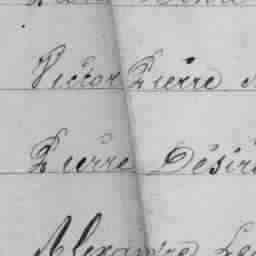 Victor Pierre
Pierre Désiré
Alexandre